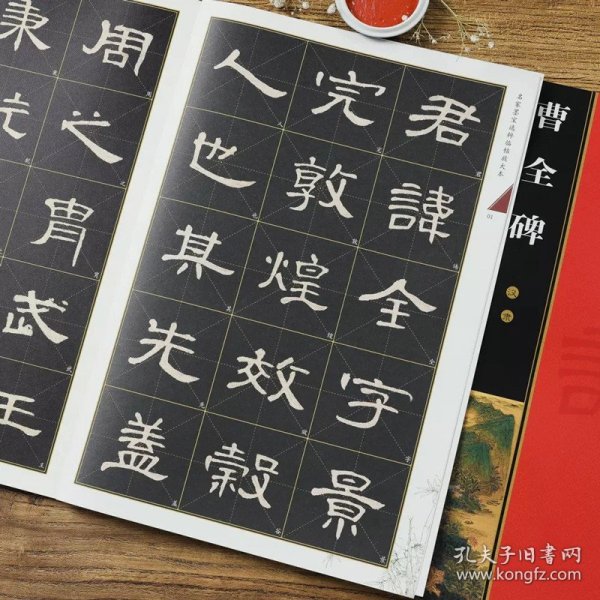 君諱全字景
完敦煌效穀
人也其先蓋
周之胄武王
秉
名家墨宝选粹临帖放大本
01
曹全碑
汉隶
孔夫子旧书网
www.kongfz.com